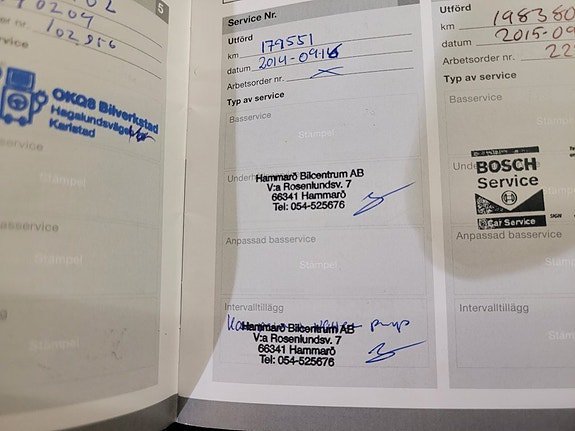 5
102956
OKQ8 Bilverkstad
Karlstad
Stämpel
Stämpel
Service Nr.
Utförd
km 179551
datum 2014-09-16
Arbetsorder nr.
Typ av service
Basservice
Stämpel
Hammarö Bilcentrum AB
V:a Rosenlundsv. 7
66341 Hammarö
Tel: 054-525676
Anpassad basservice
Stämpel
Intervalltillägg
Hammarö Bilcentrum AB
V:a Rosenlundsv. 7
66341 Hammarö
Tel: 054-525676
Utförd
km 198380
datum 2015-09
Arbetsorder nr. 22
Typ av service
Basservice
Stämpel
BOSCH
Service
Car Service
SIGN
Anpassad basservice
Stämpel
Intervalltillägg